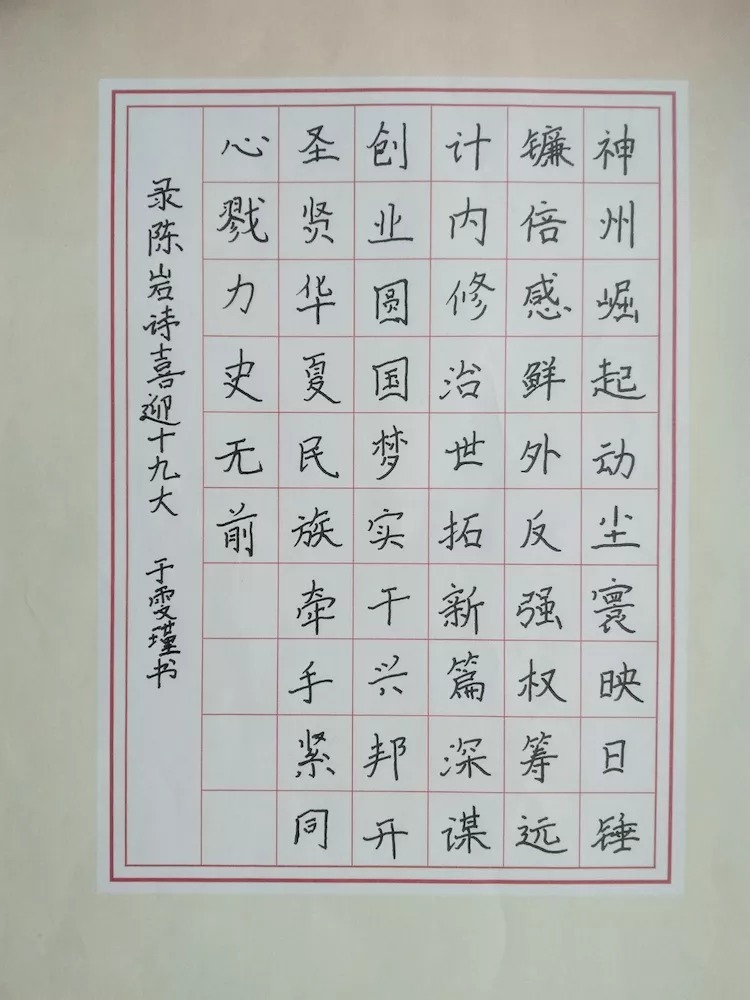 神州崛起动尘寰映日锤
镰倍感鲜外反强权筹远
计内修治世拓新篇深谋
创业圆国梦实干兴邦开
圣贤华夏民族牵手紧同
心戮力史无前
录陈岩诗喜迎十九大 于雯瑾书